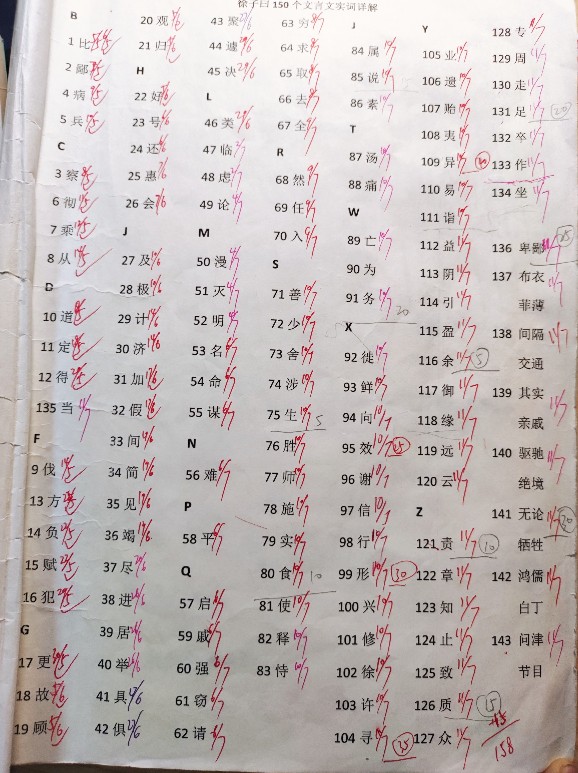 徐子曰 150 个文言文实词详解
B
1 比
2 鄙
4 病
5 兵
C
3 察
6 彻
7 乘
8 从
D
10 道
11 定
12 得
135 当
F
9 伐
13 方
14 负
15 赋
16 犯
G
17 更
18 故
19 顾
20 观
21 归
H
22 好
23 号
24 还
25 惠
26 会
J
27 及
28 极
29 计
30 济
31 加
32 假
33 间
34 简
35 见
36 竭
37 尽
38 进
39 居
40 举
41 具
42 俱
43 聚
44 遽
45 决
L
46 类
47 临
48 虑
49 论
M
50 漫
51 灭
52 明
53 名
54 命
55 谋
N
56 难
P
58 平
Q
57 启
59 戚
60 强
61 窃
62 请
63 穷
64 求
65 取
66 去
67 全
R
68 然
69 任
70 入
S
71 善
72 少
73 舍
74 涉
75 生
76 胜
77 师
78 施
79 实
80 食
81 使
82 释
83 恃
J
84 属
85 说
86 素
T
87 汤
88 痛
W
89 亡
90 为
91 务
X
92 徙
93 鲜
94 向
95 效
96 谢
97 信
98 行
99 形
100 兴
101 修
102 徐
103 许
104 寻
Y
105 业
106 遗
107 贻
108 夷
109 异
110 易
111 诣
112 益
113 阴
114 引
115 盈
116 余
117 御
118 缘
119 远
120 云
Z
121 责
122 章
123 知
124 止
125 致
126 质
127 众
128 专
129 周
130 走
131 足
132 卒
133 作
134 坐
136 卑鄙
137 布衣
菲薄
138 间隔
交通
139 其实
亲戚
140 驱驰
绝境
141 无论
牺牲
142 鸿儒
白丁
143 问津
节目
158